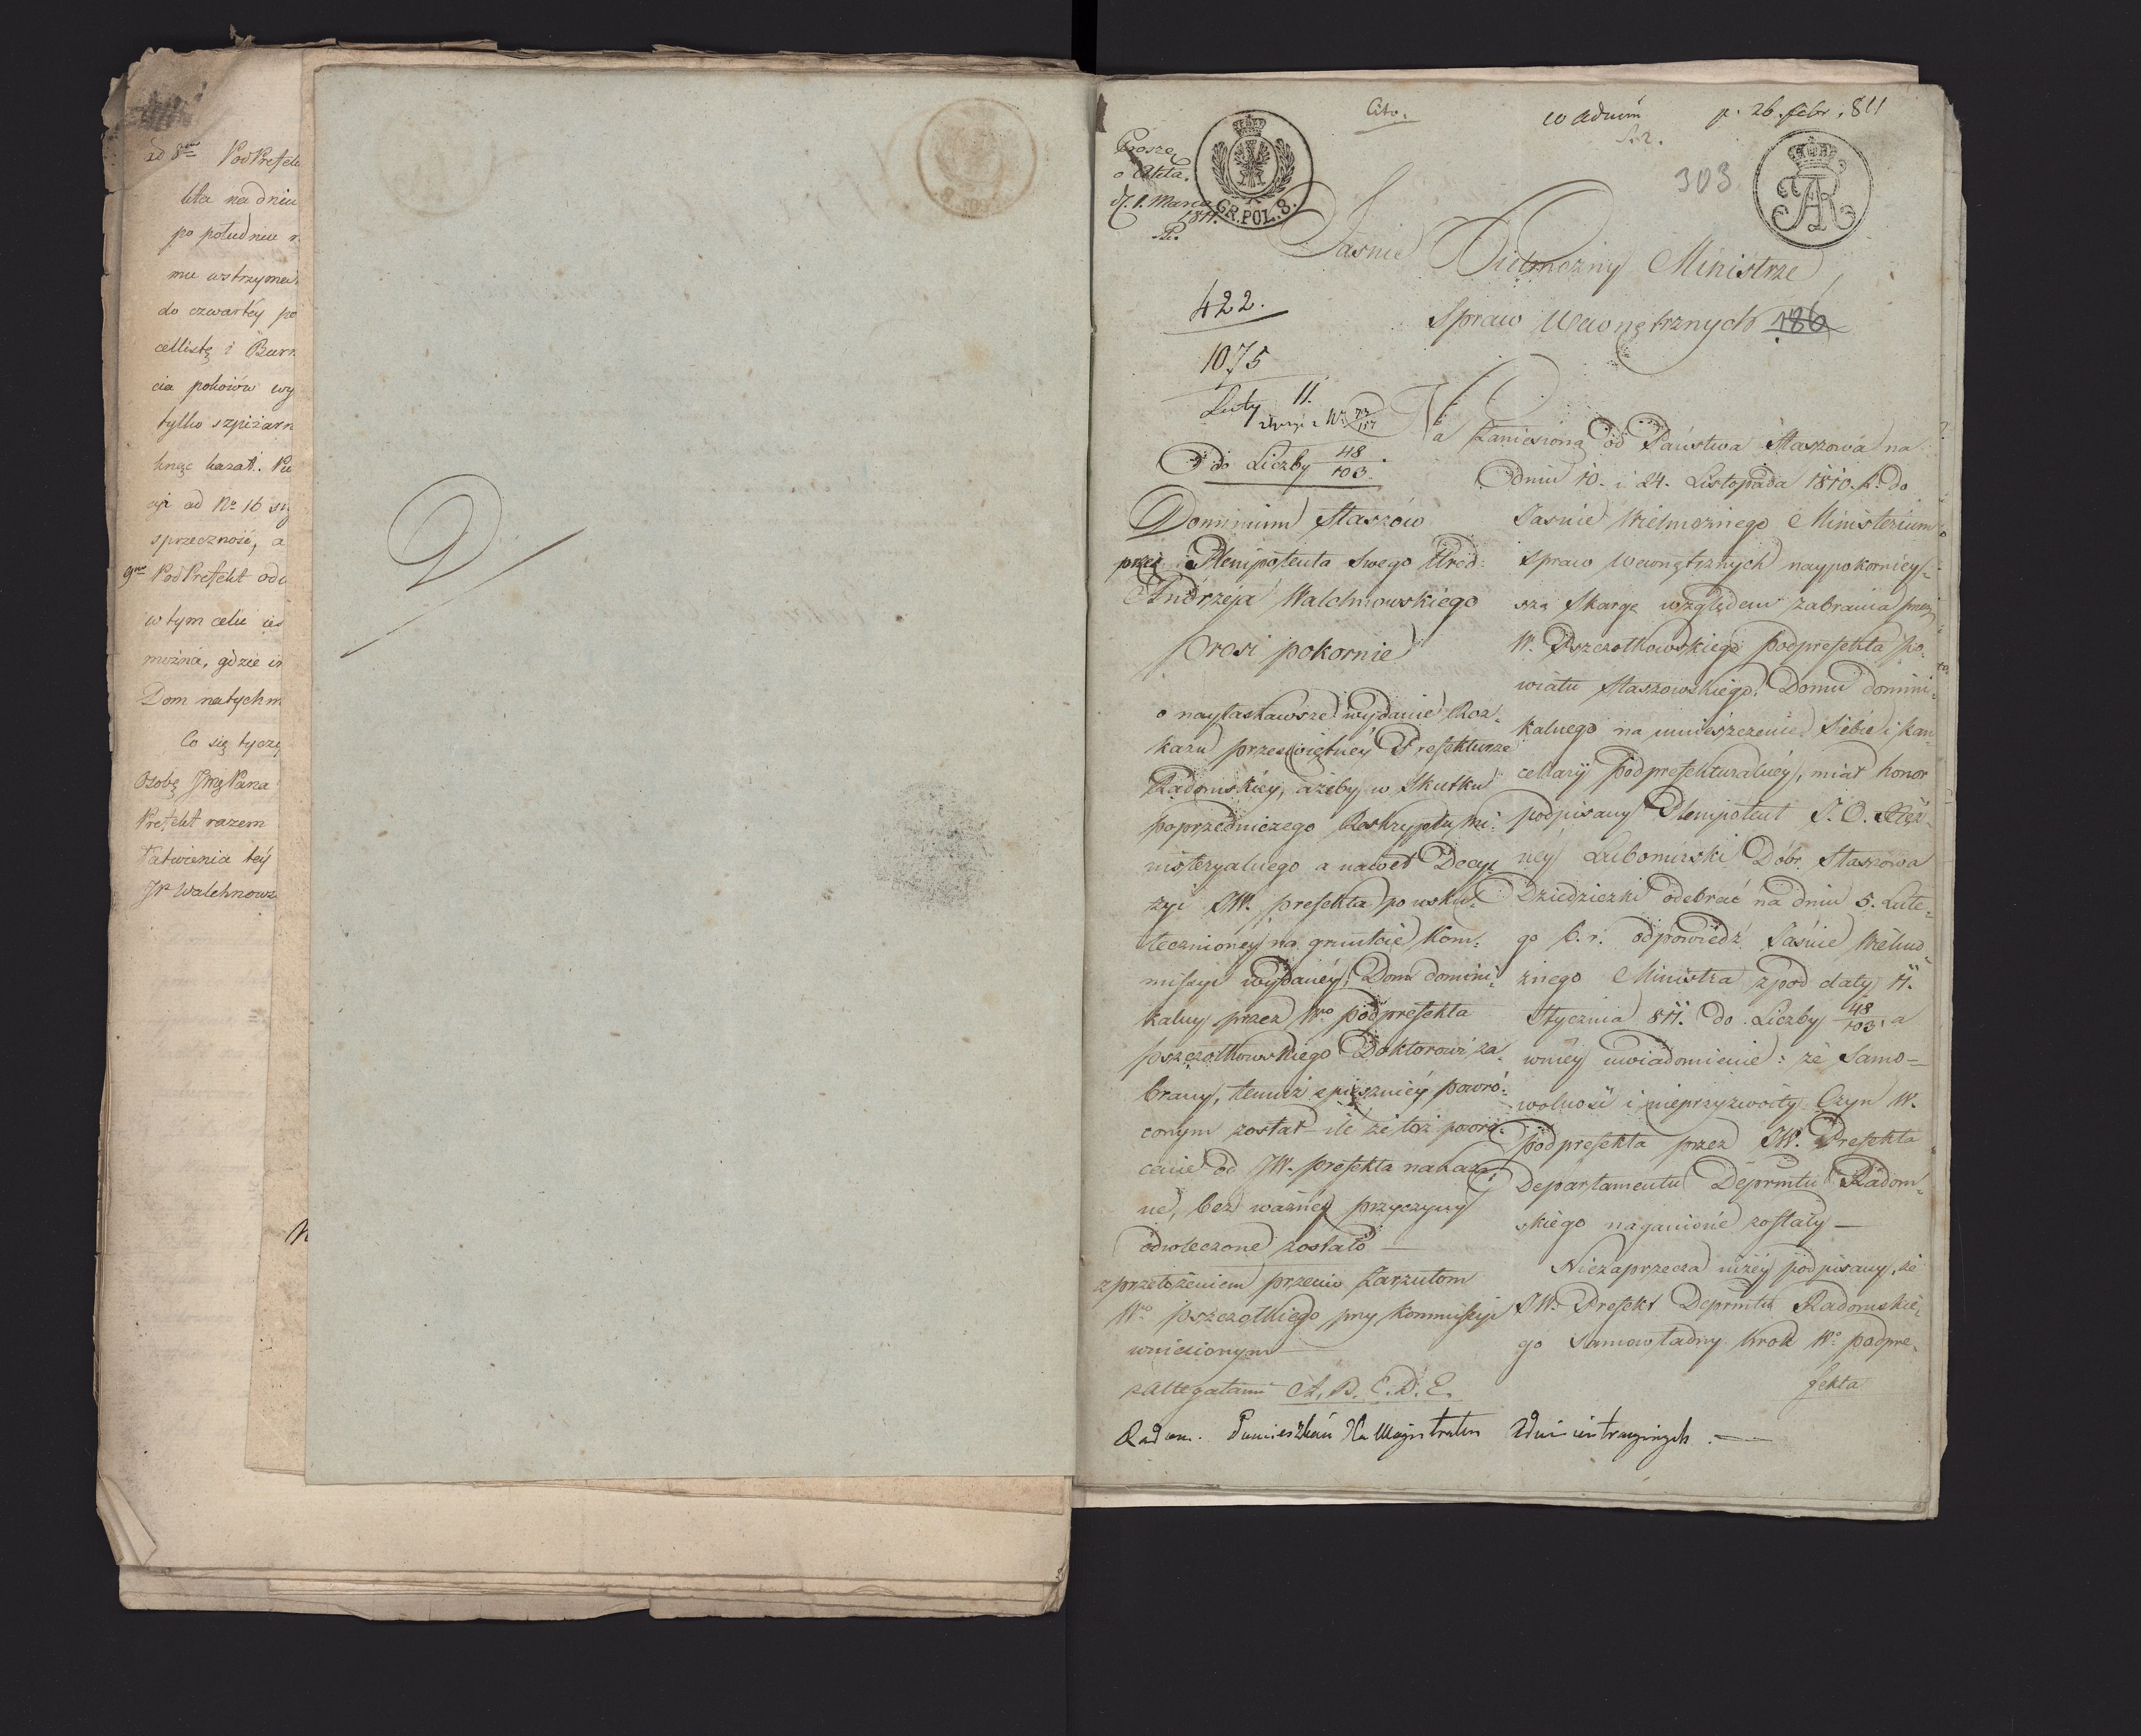 ad 8vum PodPrefek
kta na dniu
po południu
mu wstrzymał
do czwartéy po
cellistę i Burm
cia pokoiów wy
tylko szpiżarn
knąć kazał.
cyi ad No 16
sprzeczność, a
9no PodPrefekt
w tym celu
można, gdzie
Dom natychm
Co się tyczy
Osobę JmgPana
Prefekt razem
łatwienia téy
JP Walchnows
D
Cito.
w Admin
p. 26. febr. 811
Proszę
o Akta.
d. 1. Marca
1811.
GR. POL. 8.
303
AR
Jaśnie Wielmożny Ministrze
Spraw Wewnętrznych 186
422.
1075
Luty 11.
Do Liczby 48/103.
Dominium Staszów
przez Plenipotenta Swego Urod:
Andrzeja Walchnowskiego
Prosi pokornie
o nayłaskawsze wydanie Roz-
kazu prześwietnéy Prefekturze
Radomskiéy, ażeby w Skutku
poprzedniczego Reskryptu Mi-
nisteryalnego a nawet Decy-
zyi JW. prefekta po usku-
tecznionéy na gruncie Kom-
missyi wydanéy, Dom domini-
kalny przez Wgo podprefekta
pszczołkowskiego Doktorowi za-
brany, temuż spieszniéy powró-
conym został - ile że toż powró-
cenie od JW. prefekta nakaza-
ne, bez ważnéy przyczyny
odwleczone zostało —
z przełożeniem przeciw Zarzutom
Wgo pszczołkiego przy Kommissyi
wniesionym
z Allegatami A, B. C. D. E.
Na Zaniesioną od Państwa Staszowa na
dniu 10. i 24. Listopada 1810. r. do
Jaśnie Wielmożnego Ministerium
Spraw Wewnętrznych naypokorniey-
szą Skargę względem zabrania przez
W. Pszczołkowskiego podprefekta po-
wiatu Staszowskiego Domu domini-
kalnego na umieszczenie Siebie i kan-
cellaryi podprefekturalnéy, miał honor
podpisany Plenipotent J. O. Xięż-
néy Lubomirski Dóbr Staszowa
Dziedziczki odebrać na dniu 5. Lute-
go b. r. odpowiedź Jaśnie Wielmo-
żnego Ministra z pod daty 11.
Stycznia 811. do Liczby 48/103, a
w niéy uwiadomienie: że Samo-
wolność i nieprzyzwoity Czyn W.
podprefekta przez JW. Prefekta
Departamentu Deprmtu Radom-
skiego naganione zostały —
Niezaprzecza niżéy podpisany, że
JW. Prefekt Deprmtu Radomskie-
go Samowładny krok Wo podpre-
fekta
Radom. Pomieszkań Na Magistratów Administracyinych. —